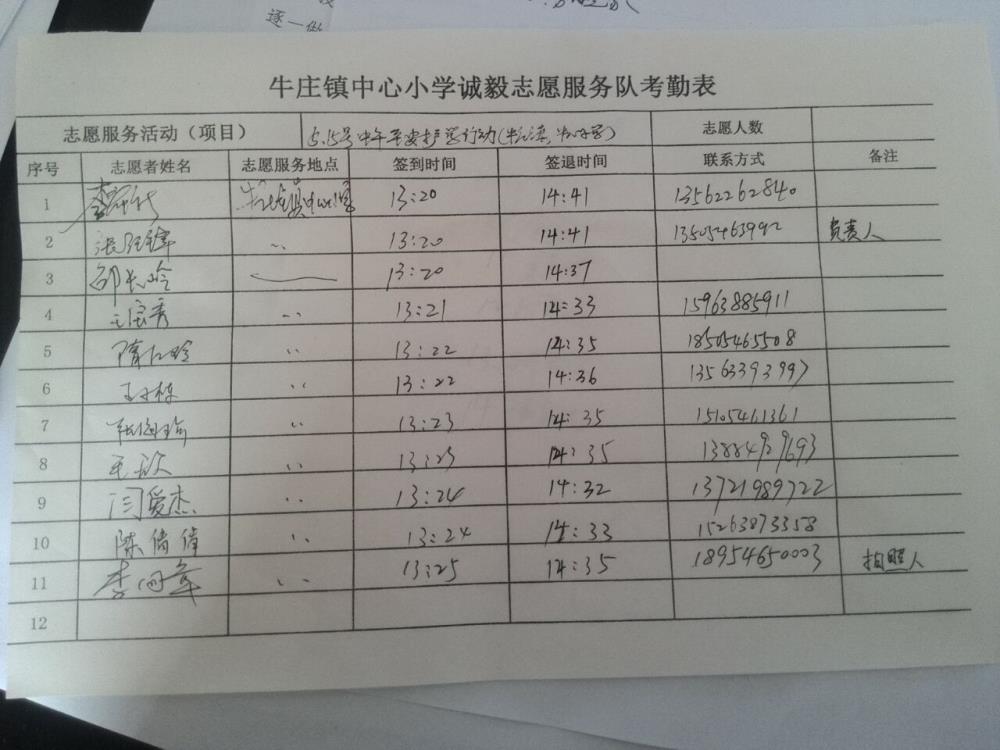 逐一做
牛庄镇中心小学诚毅志愿服务队考勤表
志愿服务活动（项目） 5.15号中午平安护学行动 志愿人数
序号 志愿者姓名 志愿服务地点 签到时间 签退时间 联系方式 备注
1 13:20 14:41 13562262840
2 〃 13:20 14:41 13505463992 负责人
3 13:20 14:37
4 王宝秀 〃 13:21 14:33 15963885911
5 〃 13:22 14:35 18505465508
6 〃 13:22 14:36 13563393997
7 〃 13:23 14:35 15105461361
8 王欣 〃 13:23 14:35 13884929693
9 闫爱杰 〃 13:24 14:32 13721989722
10 陈倩倩 〃 13:24 14:33 15263873358
11 〃 13:25 14:35 18954650003 拍照人
12